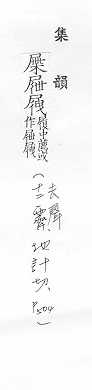 集韻
屟屜履中薦或作屜
(去聲十二霽 地計切 P.504)